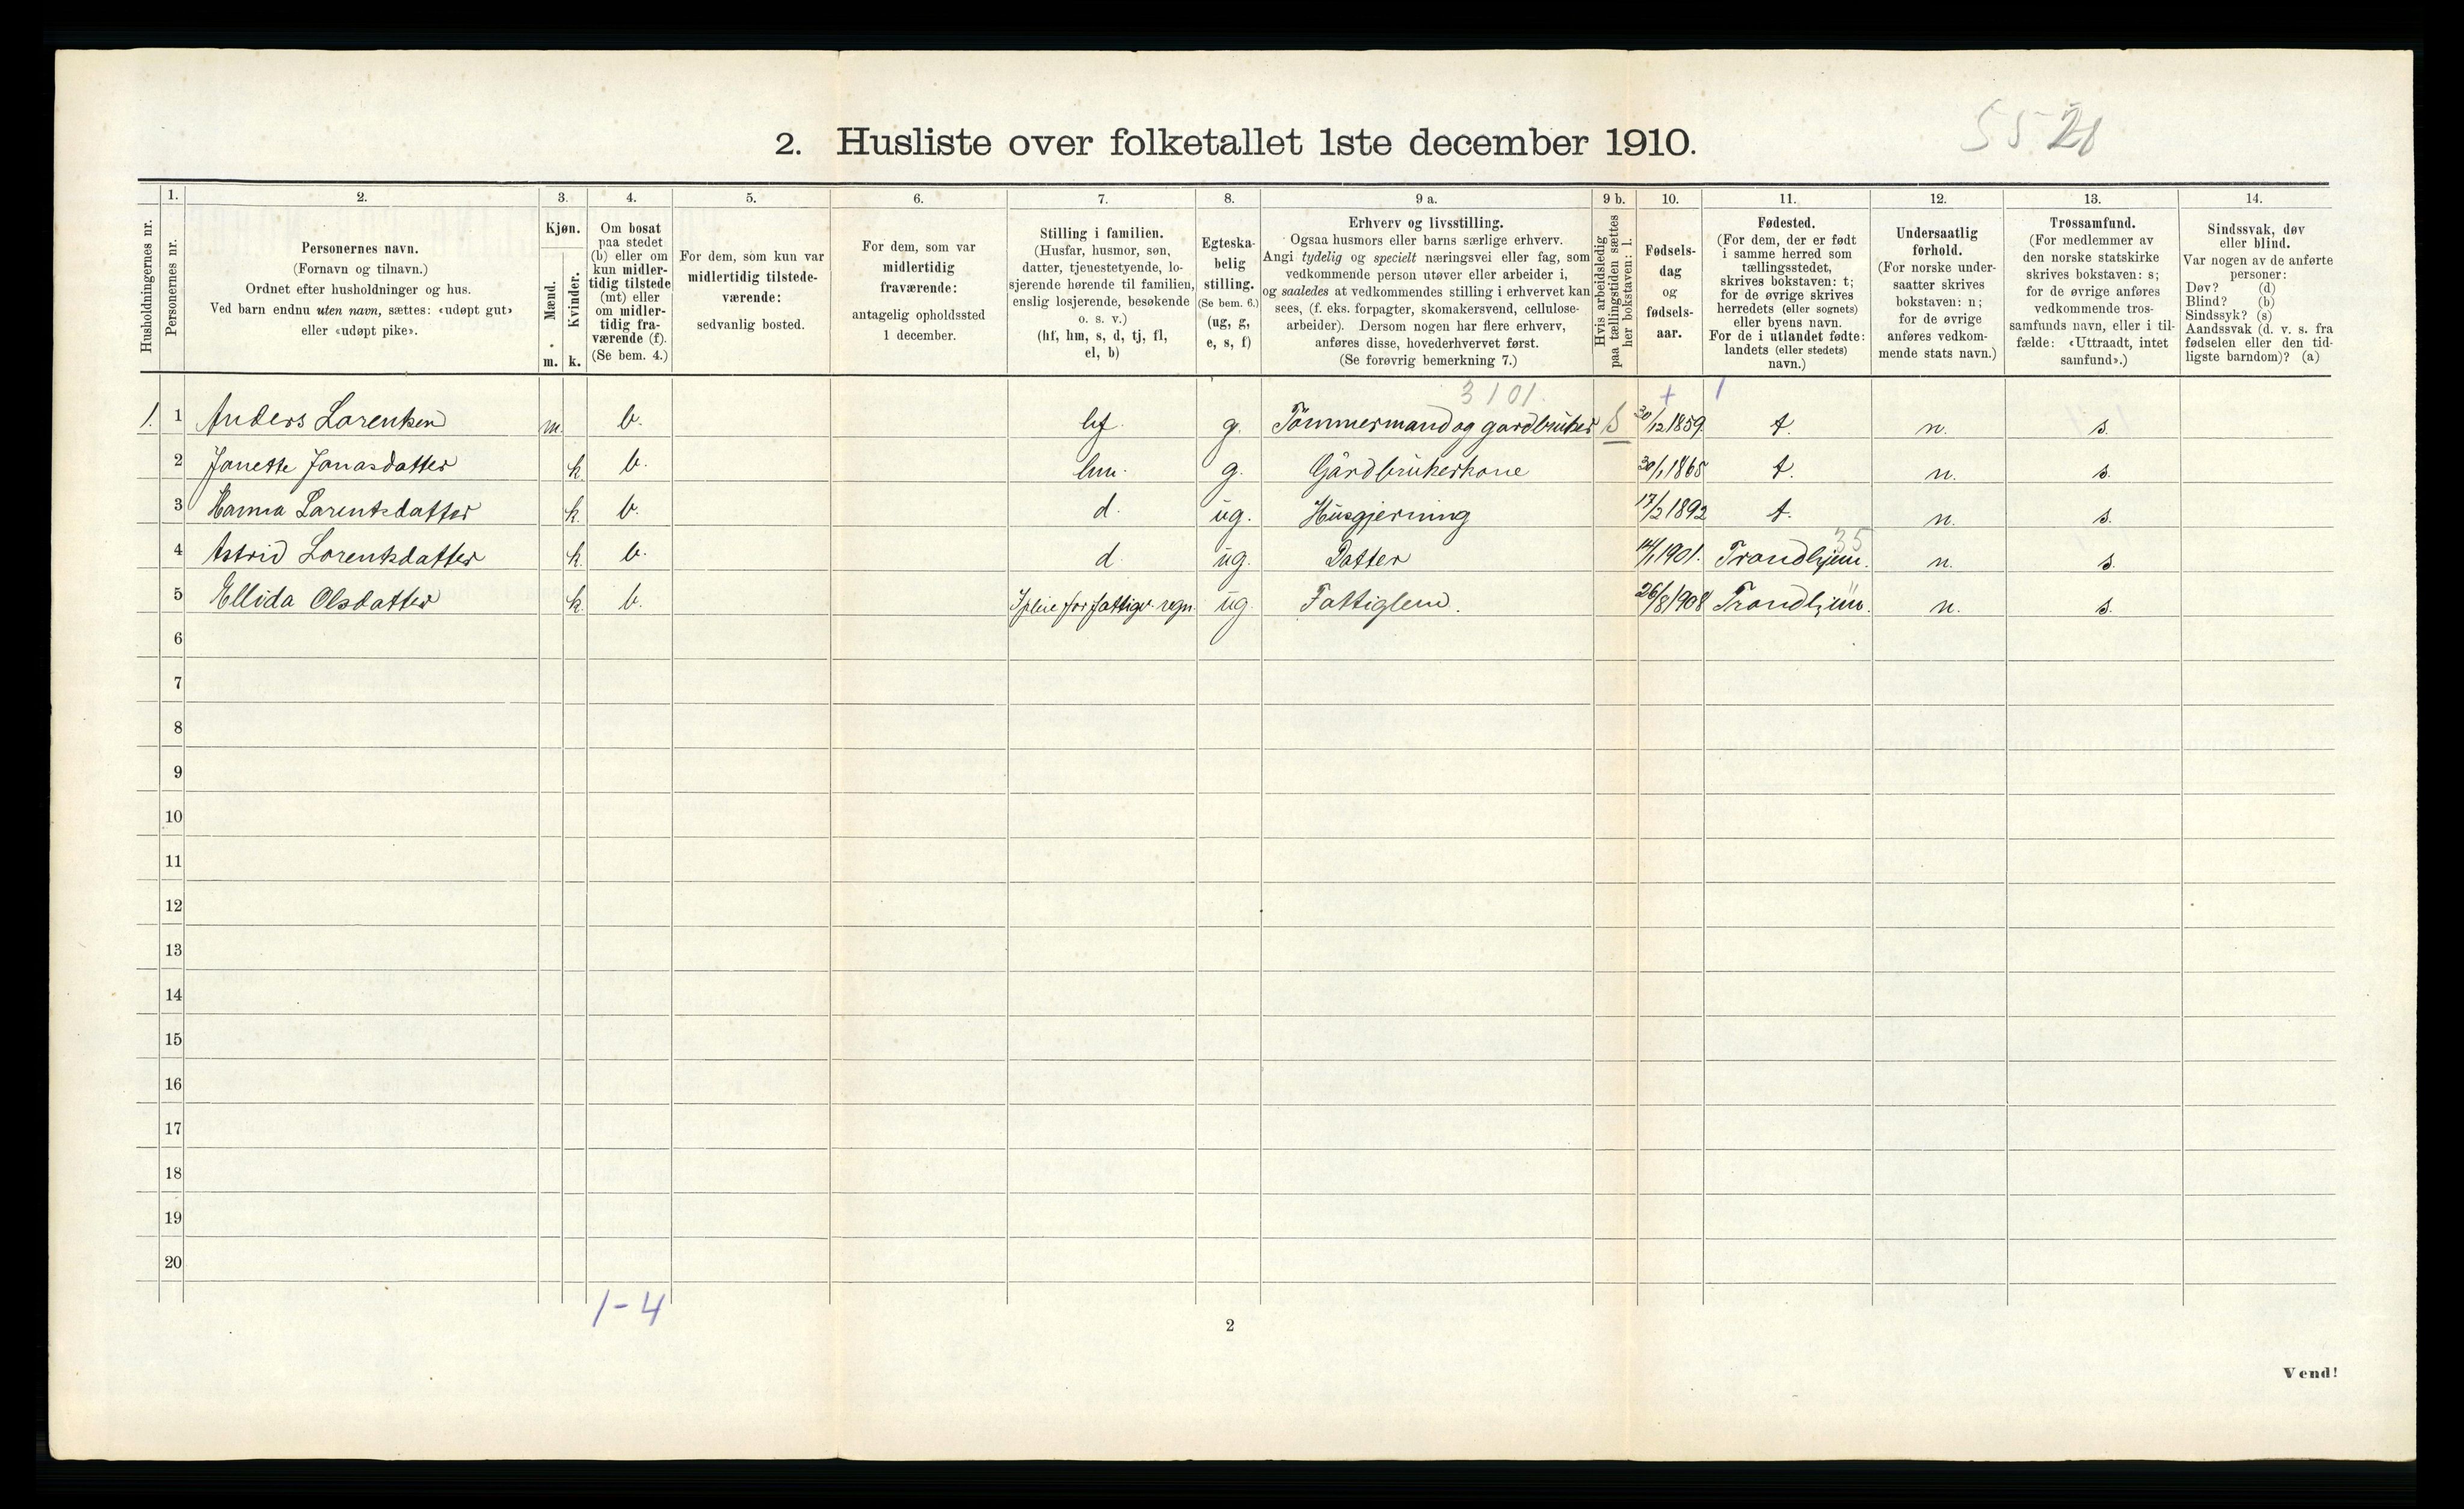 55 20
2. Husliste over folketallet 1ste december 1910.
Husholdningernes nr.
1.
Personernes nr.
2.
Personernes navn.
(Fornavn og tilnavn.)
Ordnet efter husholdninger og hus.
Ved barn endnu uten navn, sættes: «udøpt gut»
eller «udøpt pike».
3.
Kjøn.
Mænd.
m.
Kvinder.
k.
4.
Om bosat
paa stedet
(b) eller om
kun midler-
tidig tilstede
(mt) eller
om midler-
tidig fra-
værende (f).
(Se bem. 4.)
5.
For dem, som kun var
midlertidig tilstede-
værende:
sedvanlig bosted.
6.
For dem, som var
midlertidig
fraværende:
antagelig opholdssted
1 december.
7.
Stilling i familien.
(Husfar, husmor, søn,
datter, tjenestetyende, lo-
sjerende hørende til familien,
enslig losjerende, besøkende
o. s. v.)
(hf, hm, s, d, tj, fl,
el, b)
8.
Egteska-
belig
stilling.
(Se bem. 6.)
(ug, g,
e, s, f)
9 a.
Erhverv og livsstilling.
Ogsaa husmors eller barns særlige erhverv.
Angi tydelig og specielt næringsvei eller fag, som
vedkommende person utøver eller arbeider i,
og saaledes at vedkommendes stilling i erhvervet kan
sees, (f. eks. forpagter, skomakersvend, cellulose-
arbeider). Dersom nogen har flere erhverv,
anføres disse, hovederhvervet først.
(Se forøvrig bemerkning 7.)
9 b.
Hvis arbeidsledig
paa tællingstiden sættes
her bokstaven: l.
10.
Fødsels-
dag
og
fødsels-
aar.
11.
Fødested.
(For dem, der er født
i samme herred som
tællingsstedet,
skrives bokstaven: t;
for de øvrige skrives
herredets (eller sognets)
eller byens navn.
For de i utlandet fødte:
landets (eller stedets)
navn.)
12.
Undersaatlig
forhold.
(For norske under-
saatter skrives
bokstaven: n;
for de øvrige
anføres vedkom-
mende stats navn.)
13.
Trossamfund.
(For medlemmer av
den norske statskirke
skrives bokstaven: s;
for de øvrige anføres
vedkommende tros-
samfunds navn, eller i til-
fælde: «Uttraadt, intet
samfund».)
14.
Sindssvak, døv
eller blind.
Var nogen av de anførte
personer:
Døv? (d)
Blind? (b)
Sindssyk? (s)
Aandssvak (d. v. s. fra
fødselen eller den tid-
ligste barndom)? (a)
3101. + 1
1. 1 Anders Lorentsen m. b. hf. g. Tömmermand og gardbruker S 30/12 1859. t. n. s.
2 Janette Jonasdatter k b. hm. g. Gårdbrukerkone 30/1 1865 t. n. s.
3 Hanna Larentsdatter k. b. d. ug. Husgjerning 17/2 1892 t. n. s.
35
4 Astrid Lorentsdatter k. b. d. ug. Datter 14/1 1901. Trondhjem. n. s.
5 Ellida Olsdatter k b. I pleie for fattigv. regn. ug. Fattiglem. 26/8 1908 Trondhjem. n. s.
6
7
8
9
10
11
12
13
14
15
16
17
18
19
20
1-4
2
Vend!